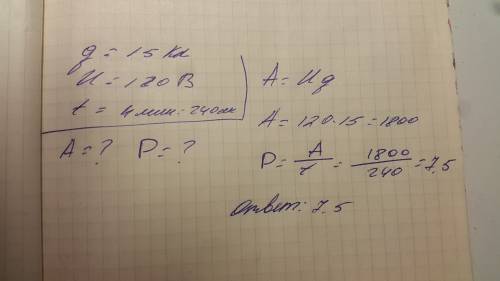 q = 15 Кл
U = 120 В
t = 4 мин = 240 сек
A = ? P = ?
A = Uq
A = 120 · 15 = 1800
P = A/t = 1800/240 = 7.5
Ответ: 7.5